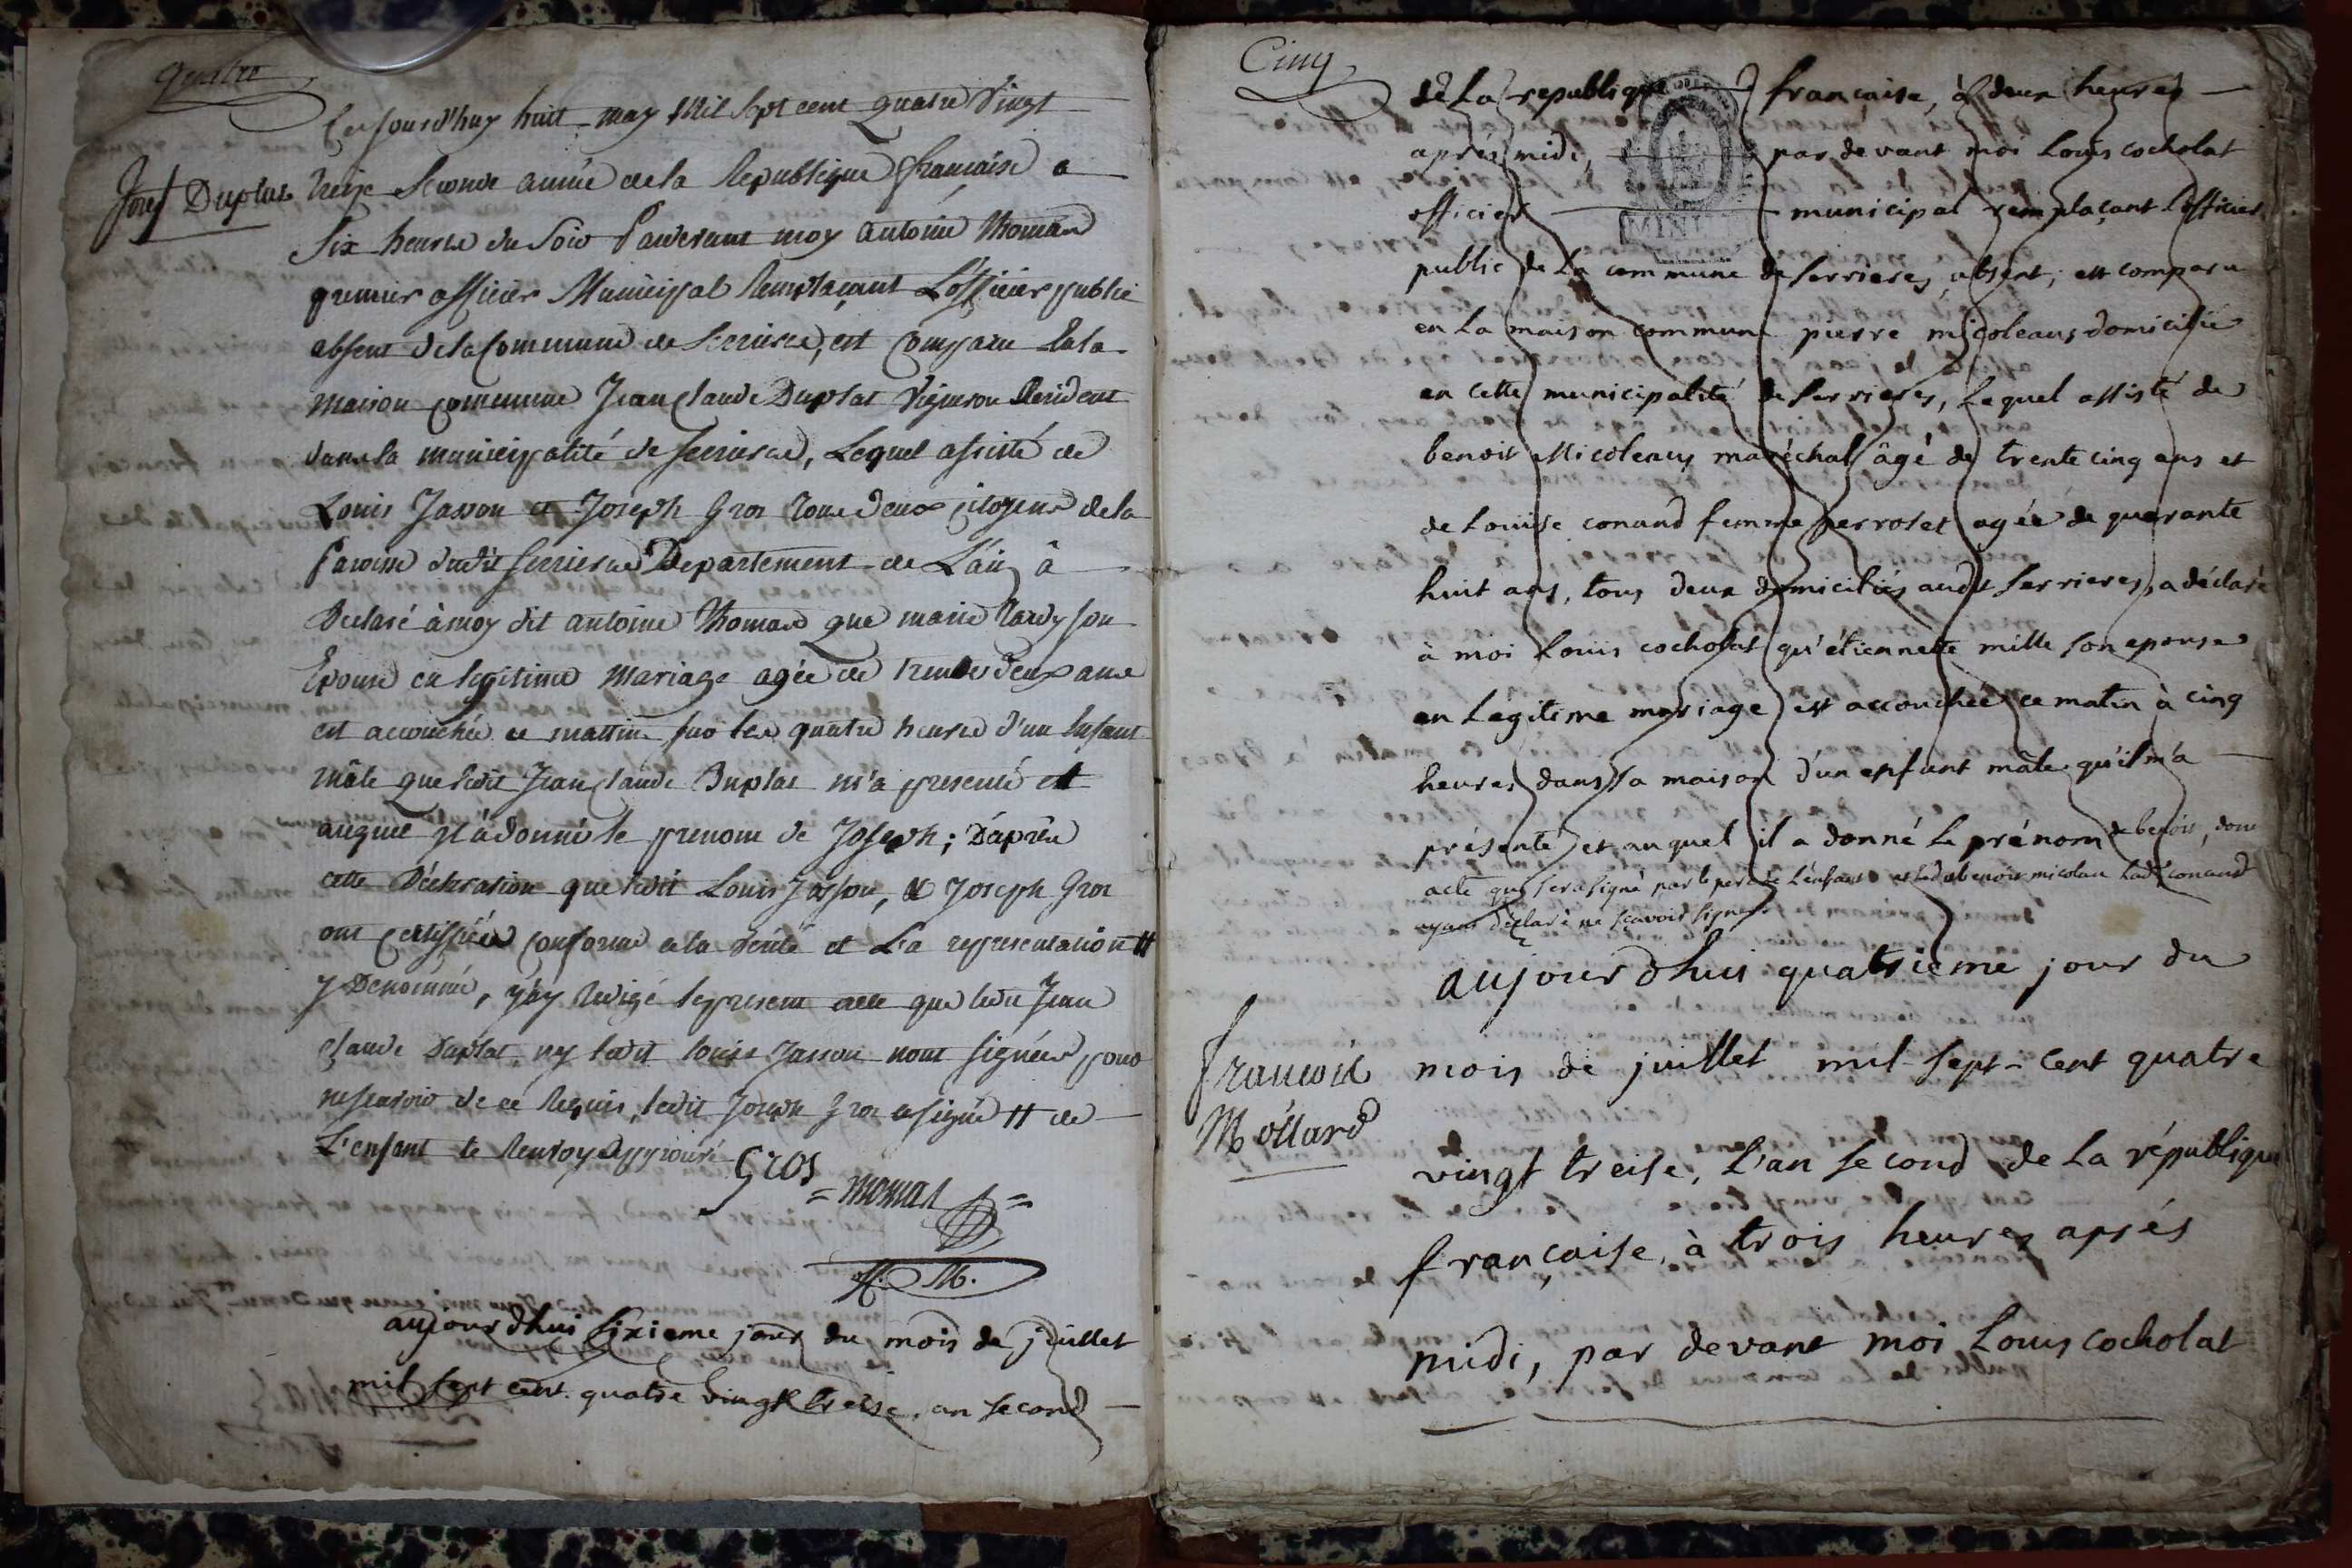 quatre
Cejourd'huy huit may Mil Sept cent quatre Vingt
Josef Duplat
treize Seconde année de la Republique francaise a
Six heures du Soir Pardevant moy antoine thomas
premier officier Municipal Remplaçant L'officier public
absent de la Commune de Serrieres, est Comparu En la
maison commune Jean Claude Duplat Vigneron Resident
dans la municipalité de Serrieres, Lequel assisté de
Louis Jasson et Joseph Gros tous deux citoyens de la
Paroisse dudit Serrieres Departement de L'ain â
Declaré à moy dit antoine thomas que marie tardy son
Epouse en legitime Mariage agée de trente deux ans
est accouchée ce mattin sur les quatre heures d'un Enfant
mâle que ledit Jean Claude Duplat m'a presenté et
auquel il à donné le prenom de Joseph; D'après
cette Déclaration que ledit Louis Jasson, & Joseph Gros
ont certiffiée conforme a la verité et La representation #
y Dénommé, j'ay Redigé le present acte que ledit Jean
Claude Duplat, ny ledit Louis Jasson nont signés pour
ne scavoir de ce Requis, ledit Joseph Gros a signé # de
L'enfant le Renvoy approuvé
Gros
= thomas =
aujourdhui sixieme jour du mois de juillet
mil sept cent quatre vingt treise, an second
Cinq
de la republique française, à deux heures
après midi, par devant moi Louis cocholat
officier municipal remplaçant l'officier
public de la commune de serrieres, absent, est comparu
en la maison commune pierre micoleaus domicilié
en cette municipalité de serrieres, lequel assisté de
benoit Micoleaus maréchal âgé de trente cinq ans et
de Louise conand femme perroset agée de quarante
huit ans, tous deux domiciliés audit serrieres, a déclaré
à moi Louis cocholat qu'étiennette mille son epouse
en légitime mariage est accouchée ce matin à cinq
heures dans sa maison d'un enfant mâle qu'il m'a
présenté et auquel il a donné le prénom de benoit, dont
acte qui sera signé par le pere de l'enfant et led. benoit micolau Lad. conand
ayant déclaré ne scavoir signer
aujourdhui quatrieme jour du
francois
Mollard
mois de juillet mil sept-cent quatre
vingt treise, l'an second de la république
française, à trois heures après
midi, par devant moi Louis cocholat